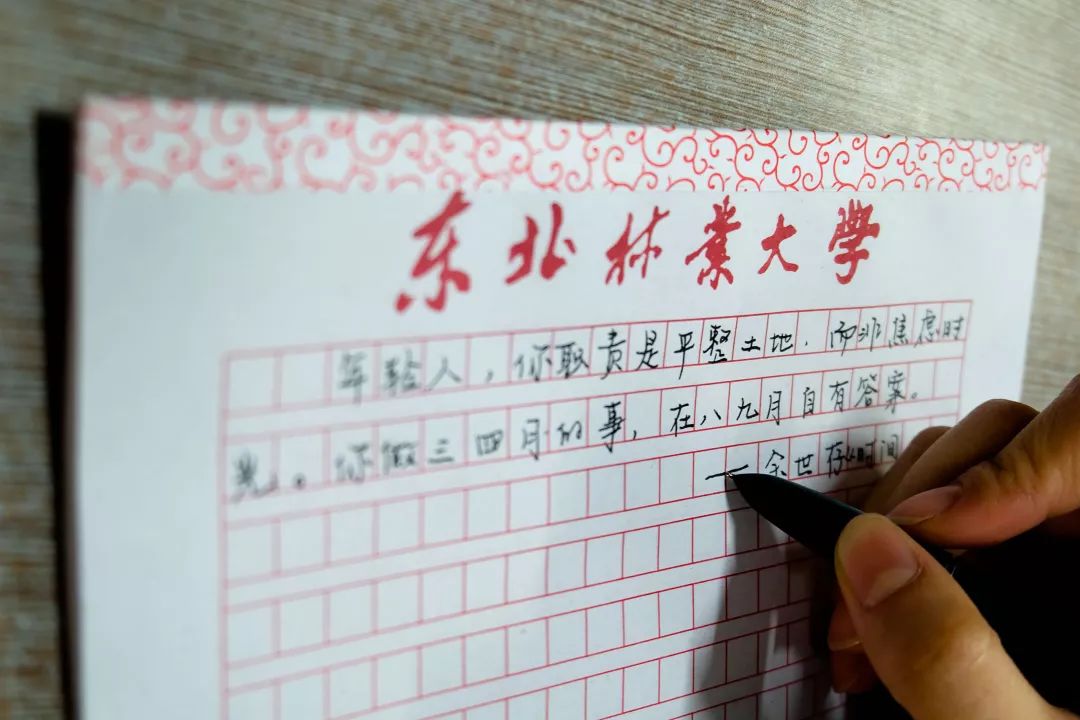 东北林业大学
年轻人，你取责是平整土地.而非焦虑时
光。你做三四月的事，在八九月自有答案。
一余世存《时间